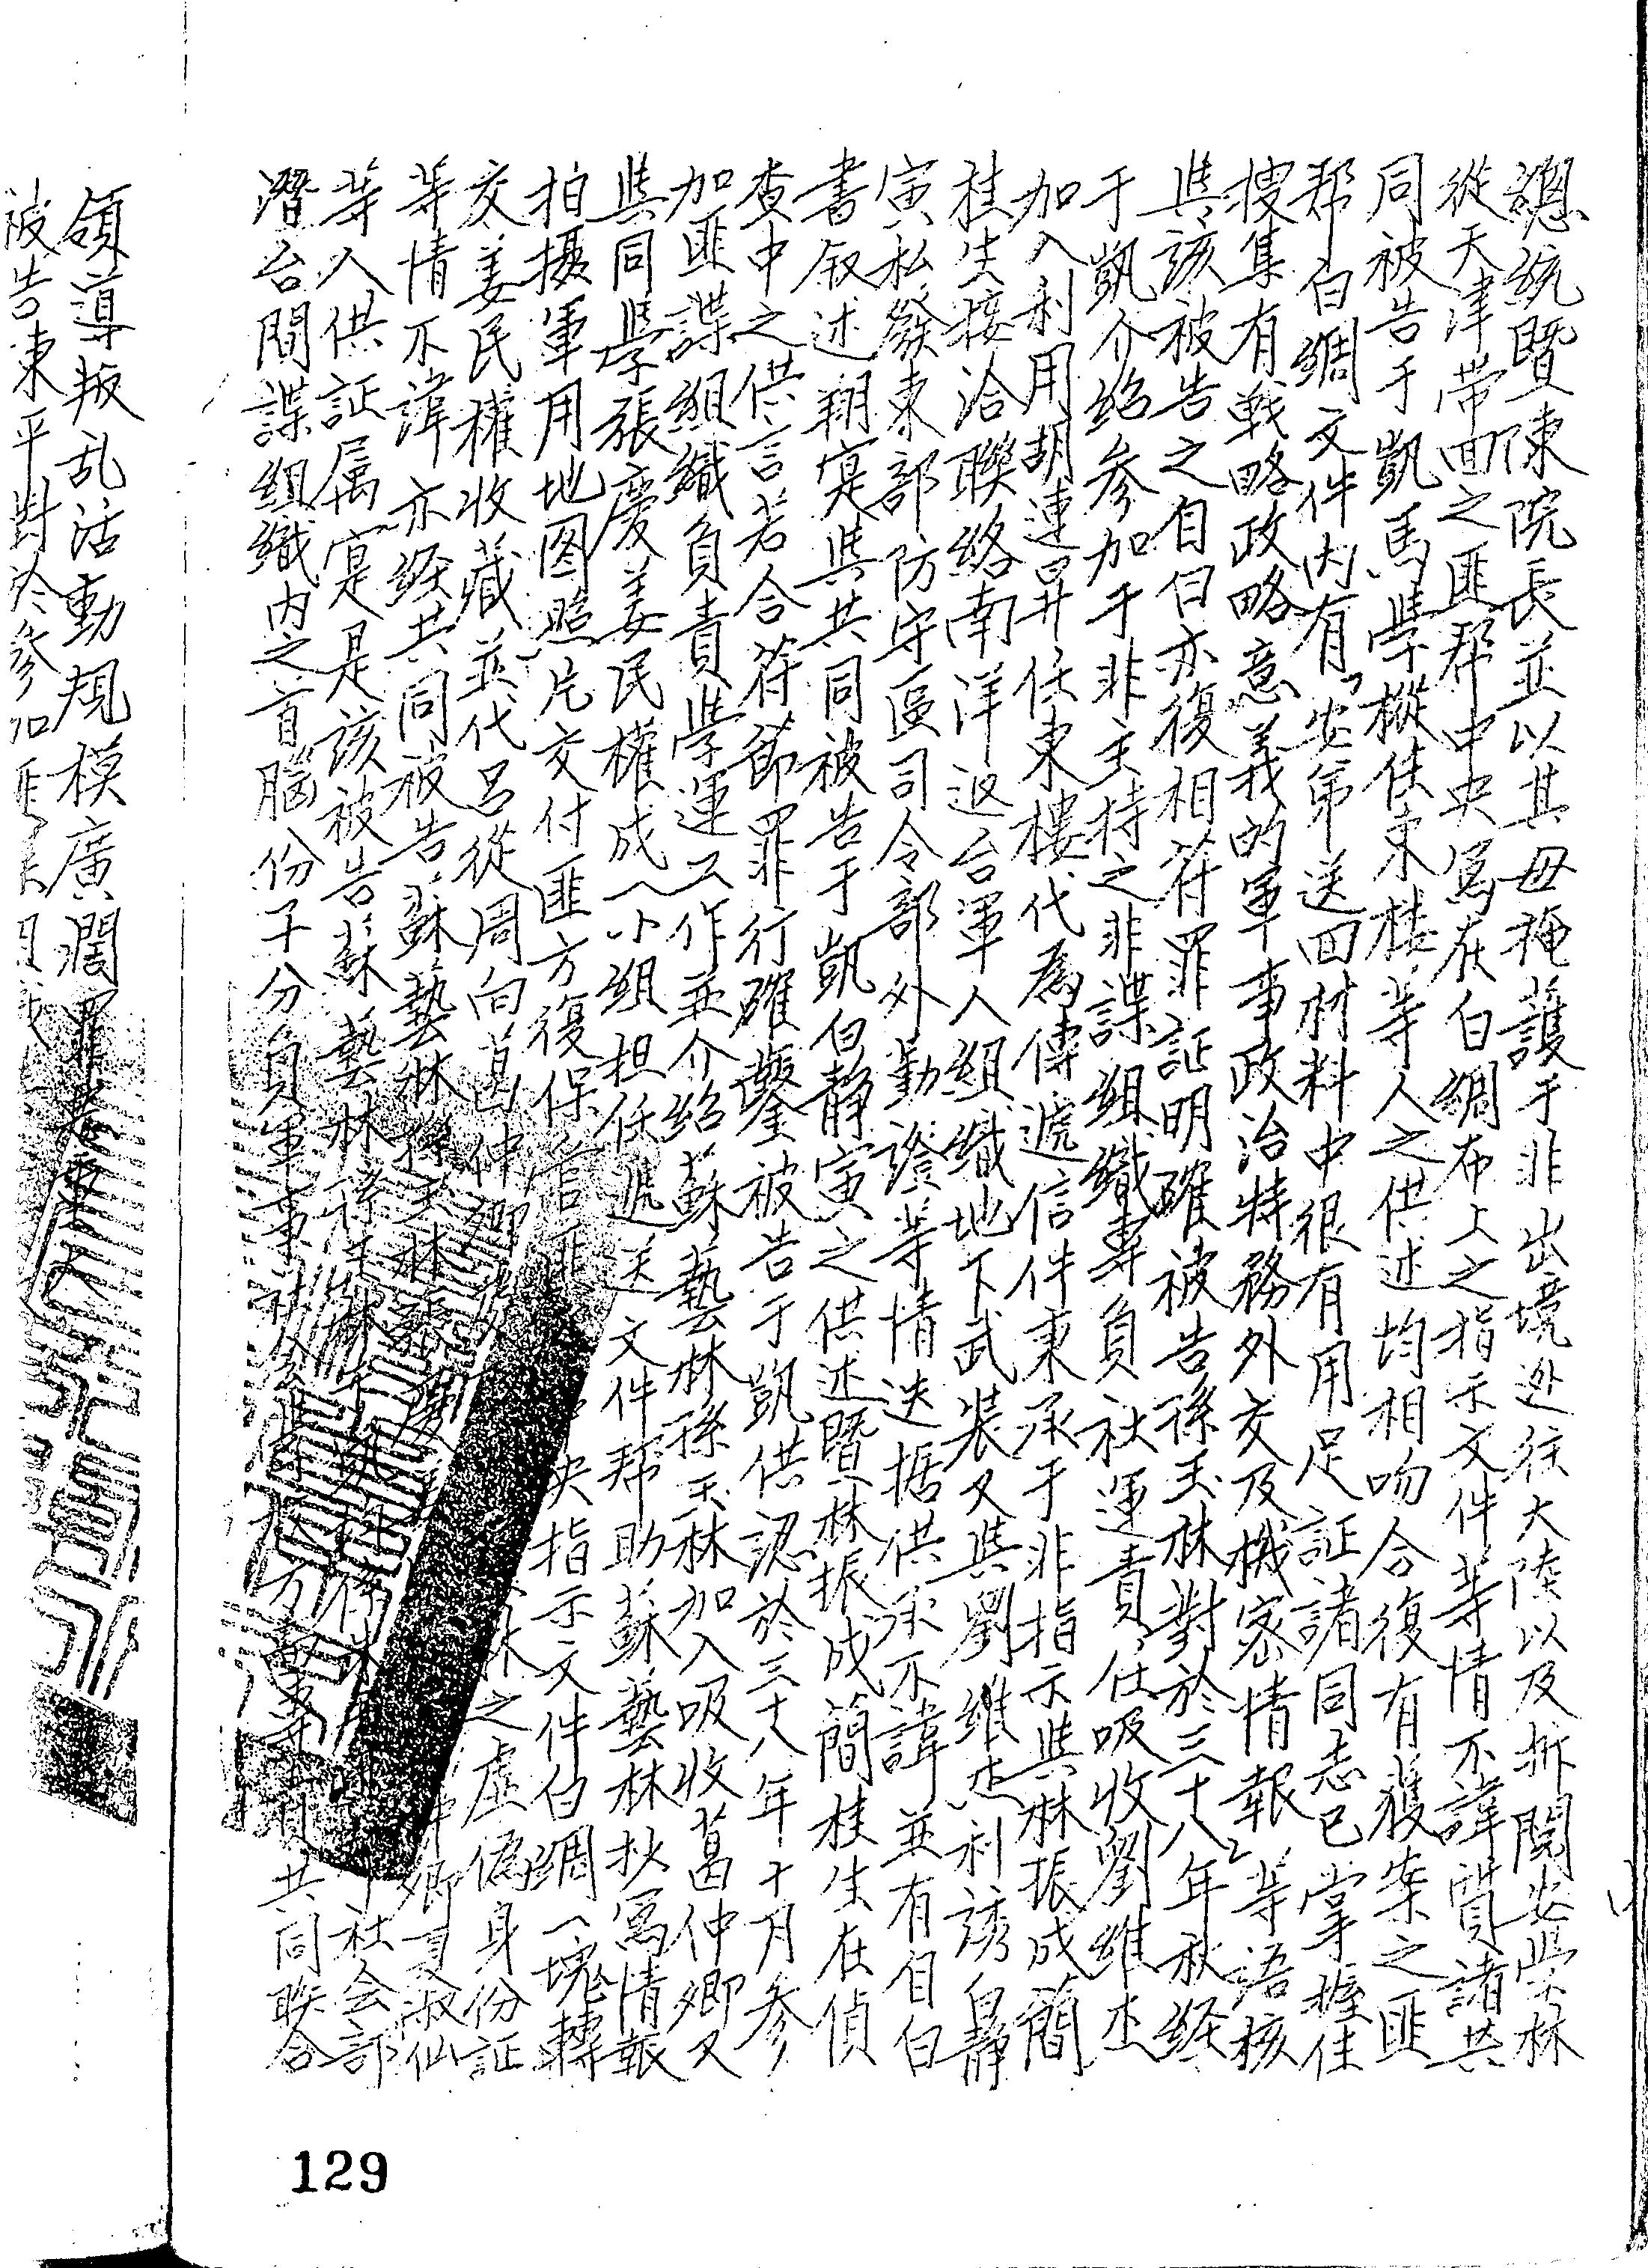 總統暨陳院長並以其毋掩護于非出境逃往大陸以及拆閱安學林
從天津帶回之匪幫中央寫在白綢布上之指示文件等情不諱質諸共
同被告于凱馬學樅住東樓等人之供述均相吻合復有獲案之匪
帮白綢文件內有「安弟送回材料中很有用足証諸同志已掌握住
搜集有戰略政略意義的軍事政治特務外交及機密情報」等語核
與該被告之自白亦復相符罪証明確被告孫玉林對於三十八年秋經
于凱介紹参加于非主持之非諜組織專負社運責任吸收劉維杰
加入利用胡連昇任東樓代為傳遞信件秉承于非指示與林振成簡
桂生接洽聯絡南洋返台軍人組織地下武裝又與劉維杰利誘白靜
寅私發東部防守區司令部外勤證等情迭据供承不諱並有自白
書叙述翔寔與共同被告于凱白靜寅之供述暨林振成簡桂生在偵
查中之供言若合符節罪行確鑿被告于凱供認於三十八年十月参
加匪諜組織負責學運工作並介紹蘇藝林孫玉林加入吸收葛仲卿又
與同學張慶姜民權成一小組担任遞送文件帮助蘇藝林抄寫情報
拍攝軍用地图照片交付匪方復保管匪 央指示文件白綢一塊轉
交姜民權收藏並代呂從周向葛仲卿 之虛偽身份証
等情不諱亦經共同被告蘇藝林孫玉林張慶 仲卿 淑仙
等人供証属寔是該被告蘇藝林孫玉林于凱 社会部
潛台間諜組織內之首腦份子分負軍事社会 共同联合
領導叛乱活動規模廣濶罪惡重大
被告東平對於參加
129